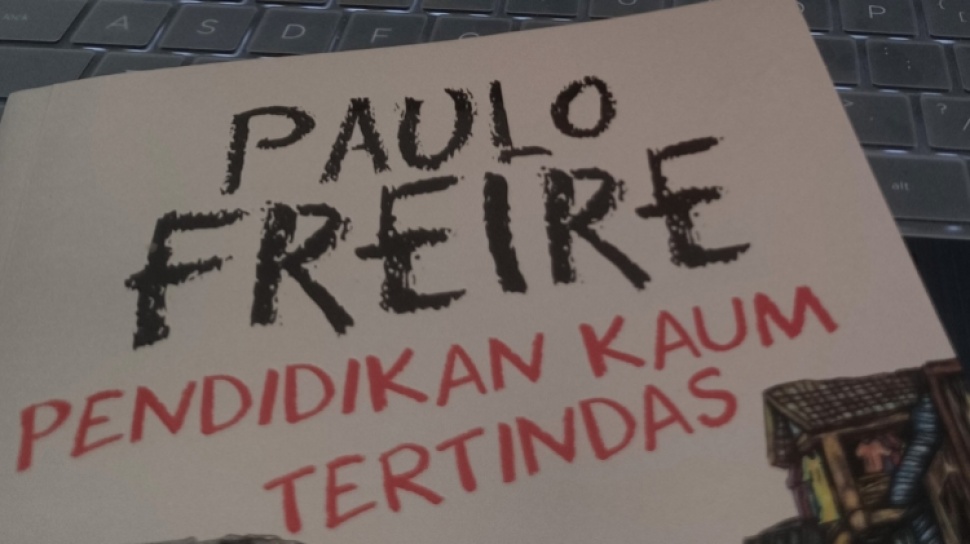 PAULO
FREIRE
PENDIDIKAN KAUM
TERTINDAS
A S D F
P
alt